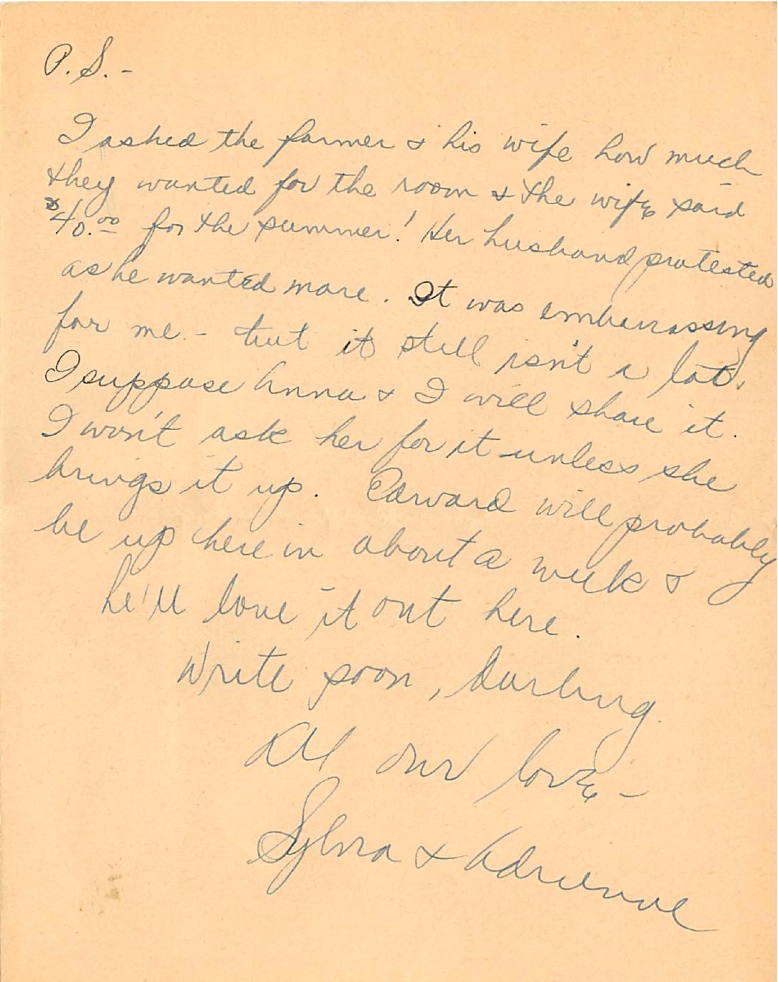 P.S. -
I asked the farmer & his wife how much
they wanted for the room & the wife said
$40.00 for the summer! Her husband protested
as he wanted more. It was embarrassing
for me - but it still isn't a lot.
I suppose Anna & I will share it.
I won't ask her for it unless she
brings it up. Edward will probably
be up here in about a week &
he'll love it out here.
Write soon, darling.
All our love -
Sylvia & Adrienne